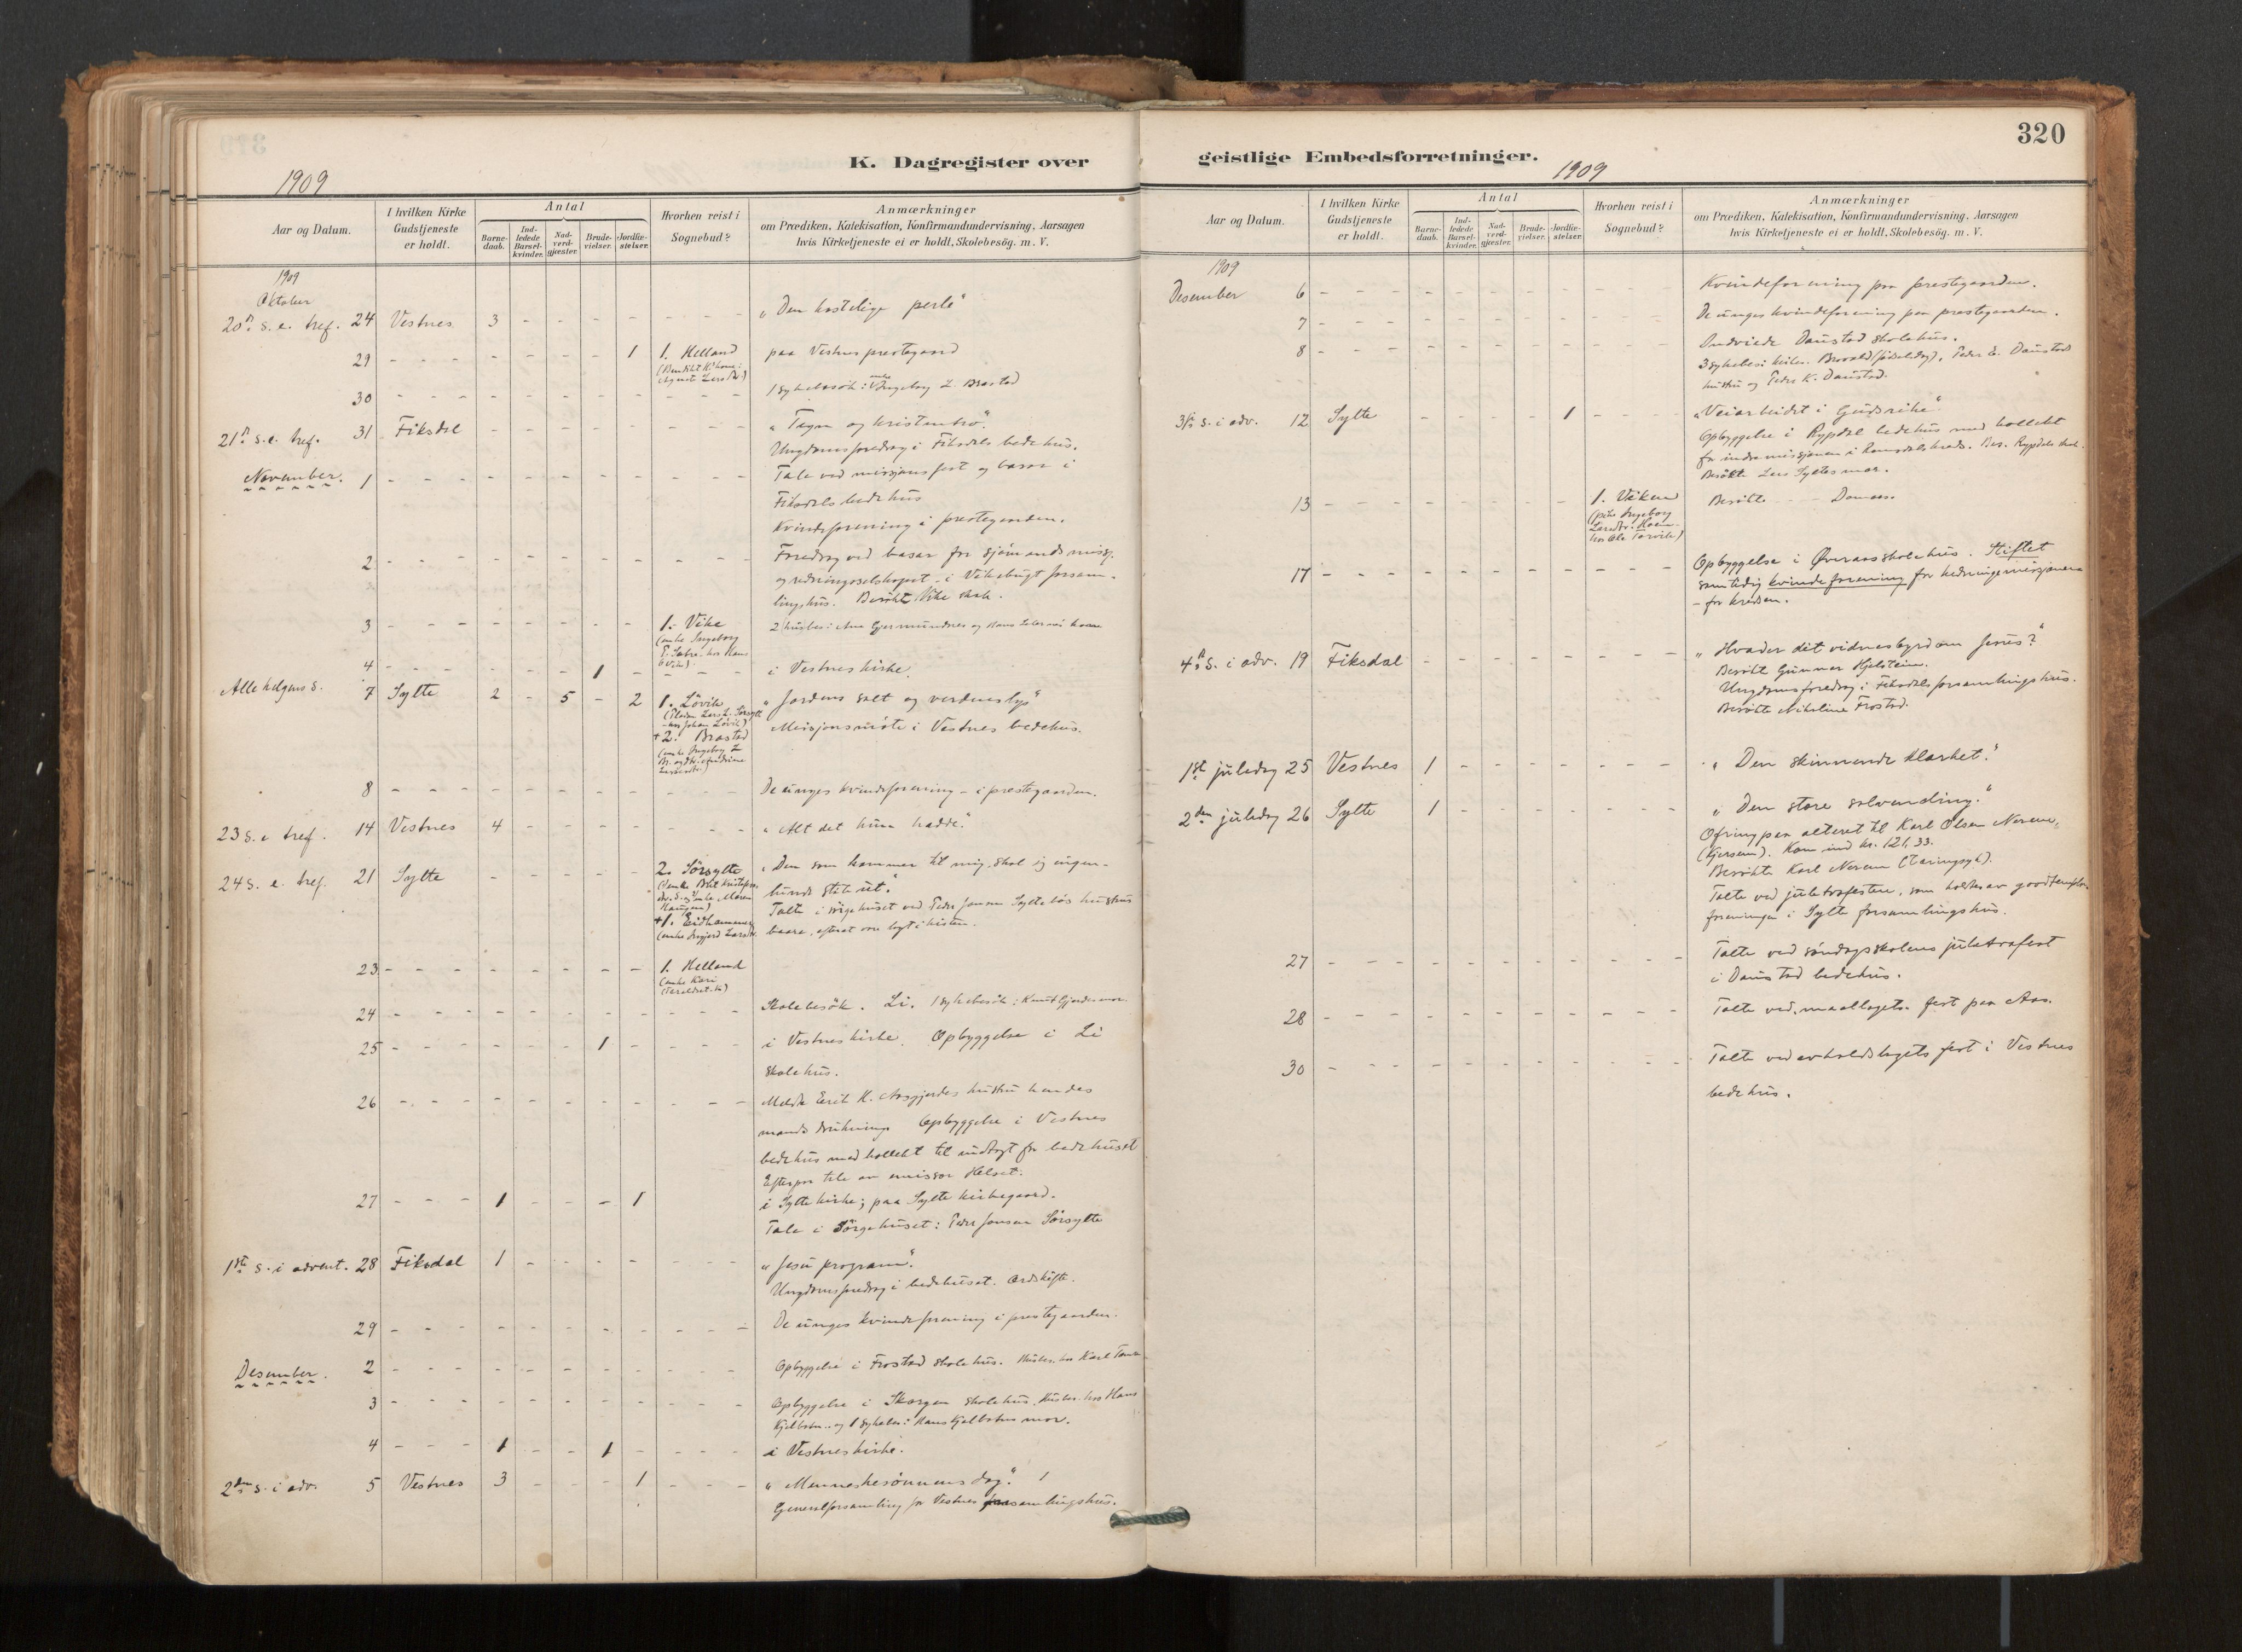 K. Dagregister over
1909
Aar og Datum.
I hvilken Kirke Gudstjeneste er holdt.
Antal
Barne-daab.
Ind-ledede Barsel-kvinder.
Nad-verd-gjæster.
Brude-vielser.
Jordfæ-stelser.
Hvorhen reist i Sognebud?
Anmærkninger
om Prædiken, Katekisation, Konfirmandundervisning, Aarsagen
hvis Kirketjeneste ei er holdt, Skolebesög. m. V.
1909
Oktober
20de s. e. tref. 24 Vestnes 3 - - - - - - - "Den kostelige perle"
29 - - - - - - - 1 1. Helland paa Vestnes prestegaard
30 - - - - - - - - - - 1 sykebesök: enke Ingeborg L. Brastad
21de s. e. tref. 31 Fiksdal - - - - - - - - "Tegn og kristentro."
Ungdomsforedrag i Fiksdals bedehus.
November. 1 - - - - - - - - - - Tale ved missjonsfest og basar i
Fiksdals bedehus
Kvindeforening i prestegaarden.
2 - - - - - - - - - - Foredrag ved basar for sjömandsmissj.
og redningsselskapet i Vikebugt forsam-
lingshus. Besökt Vike skole.
3 - - - - - - - - 1. Vike
(enke Ingeborg
4 - - - - - - 1 - - - - i Vestnes kirke.
Alle helgens s. 7 Sylte 2 - 5 - 2 1. Lövik "Jordens salt og verdens lys"
Missjonsmöte i Vestnes bedehus.
+2. Brastad
8 - - - - - - - - - - De unges kvindeforening - i prestegaarden.
23 s. e. tref. 14 Vestnes 4 - - - - - - - "Alt det hun hadde."
24 s. e. tref. 21 Sylte - - - - - 2. Sörsylte "Den som kommer til mig, skal jeg ingen-
lunde støte ut."
+1. Eidhammer
23 - - - - - - - - 1. Helland
(enke Kari
24 - - - - - - - - - - Skolebesök. Li. 1 sykebesök: Knut Gjerdes mor.
25 - - - - - - 1 - - - - i Vestnes kirke. Opbyggelse i Li
skolehus.
26 - - - - - - - - - -
mands drukning. Opbyggelse i Vestnes
bedehus med kollekt til indtægt for bedehuset
27 - - - 1 - - - 1 i Sylte kirke; paa Sylte kirkegaard.
Tale i Sörgehuset: Peder Jonsen Sörsylte
1ste s. i advent. 28 Fiksdal 1 - - - - - - - "Jesu program."
Ungdomsforedrag i bedehuset. Ordskifte.
29 - - - - - - - - - - De unges kvindeforening i prestegaarden.
Desember. 2 - - - - - - - - - - Opbyggelse i Frostad skolehus.
3 - - - - - - - - - - Opbyggelse i Skorgen skolehus.
4 - - - 1 - - 1 - - - - i Vestnes kirke.
2den s. i adv. 5 Vestnes 3 - - - 1 - - - "Menneskesönnens dag."
Generalforsamling for Vestnes forsamlingshus.
320
geistlige Embedsforretninger.
1909
Aar og Datum.
I hvilken Kirke Gudstjeneste er holdt.
Antal
Barne-daab.
Ind-ledede Barsel-kvinder.
Nad-verd-gjæster.
Brude-vielser.
Jordfæ-stelser.
Hvorhen reist i Sognebud?
Anmærkninger
om Prædiken, Katekisation, Konfirmandundervisning, Aarsagen
hvis Kirketjeneste ei er holdt, Skolebesög. m. V.
1909
Desember 6 - - - - - - - - - - Kvindeforening paa prestegaarden.
7 - - - - - - - - - - De unges kvindeforening paa prestegaarden.
8 - - - - - - - - - - Indviede Daugstad skolehus.
3je s. i adv. 12 Sylte - - - - 1 - - - "Veiarbeidet i Guds rike"
Opbyggelse i Rypdal bedehus med kollekt
for indremissjonen i Romsdals
Besökte Lars Syltes mor.
13 - - - - - - - - 1. Viken Besökte
(pike Ingeborg
17 - - - - - - - - - - Opbyggelse i Øveraas skolehus. Stiftet
samtidig kvindeforening for hedningemissjonen
- for kredsen.
4de s. i adv. 19 Fiksdal - - - - - - - - "Hvad er dit vidnesbyrd om Jesus?"
Besökt Gunner Hjelstein.
Ungdomsforedrag i Fiksdals forsamlingshus.
Besökte Nikoline Frostad.
1ste juledag 25 Vestnes 1 - - - - - - - "Den skinnende klarhet."
2den juledag 26 Sylte 1 - - - - - - - "Den store solvending."
Ofring paa alteret til Karl Olsen Nerem,
Kom ind kr. 121,33.
Besökte Karl Nerem (Tæringsyk).
Talte ved juletræfesten, som holdtes av goodtemplar-
foreningen i Sylte forsamlingshus.
27 - - - - - - - - - - Talte ved söndagsskolens juletræfest
i Daugstad bedehus.
28 - - - - - - - - - - Talte ved maallagets fest paa Aas.
30 - - - - - - - - - - Talte ved avholdslagets fest i Vestnes
bedehus.